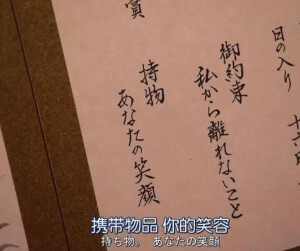 日の入り 十六
御約束
私から離れないこと
持物
あなたの笑顔
携带物品 你的笑容
持ち物。 あなたの笑顔